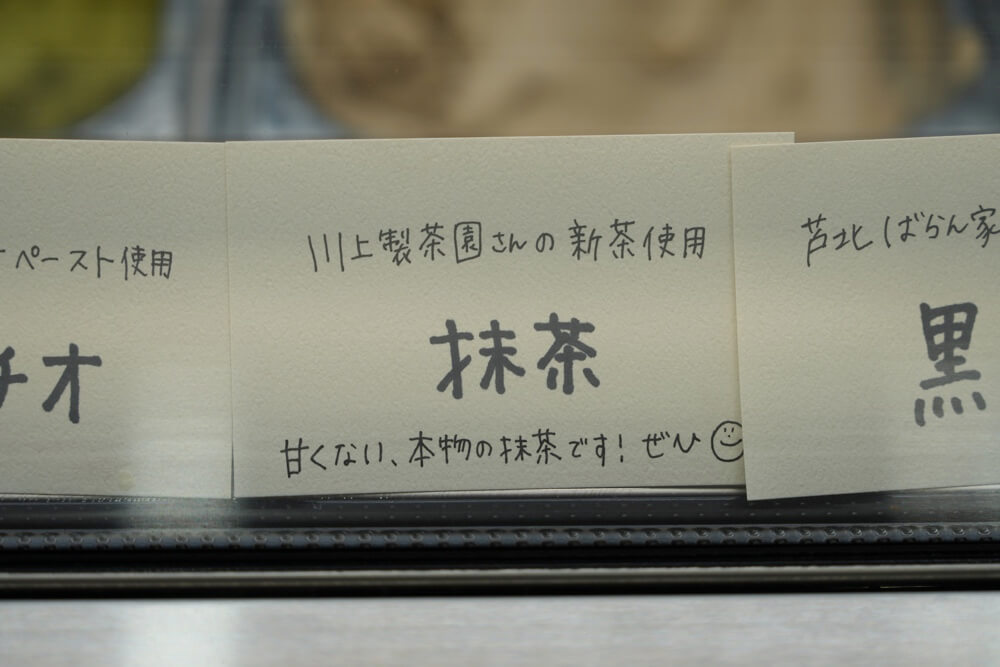 ペースト使用
チオ
川上製茶園さんの新茶使用
抹茶
甘くない、本物の抹茶です！ぜひ
芦北ばらん家
黒